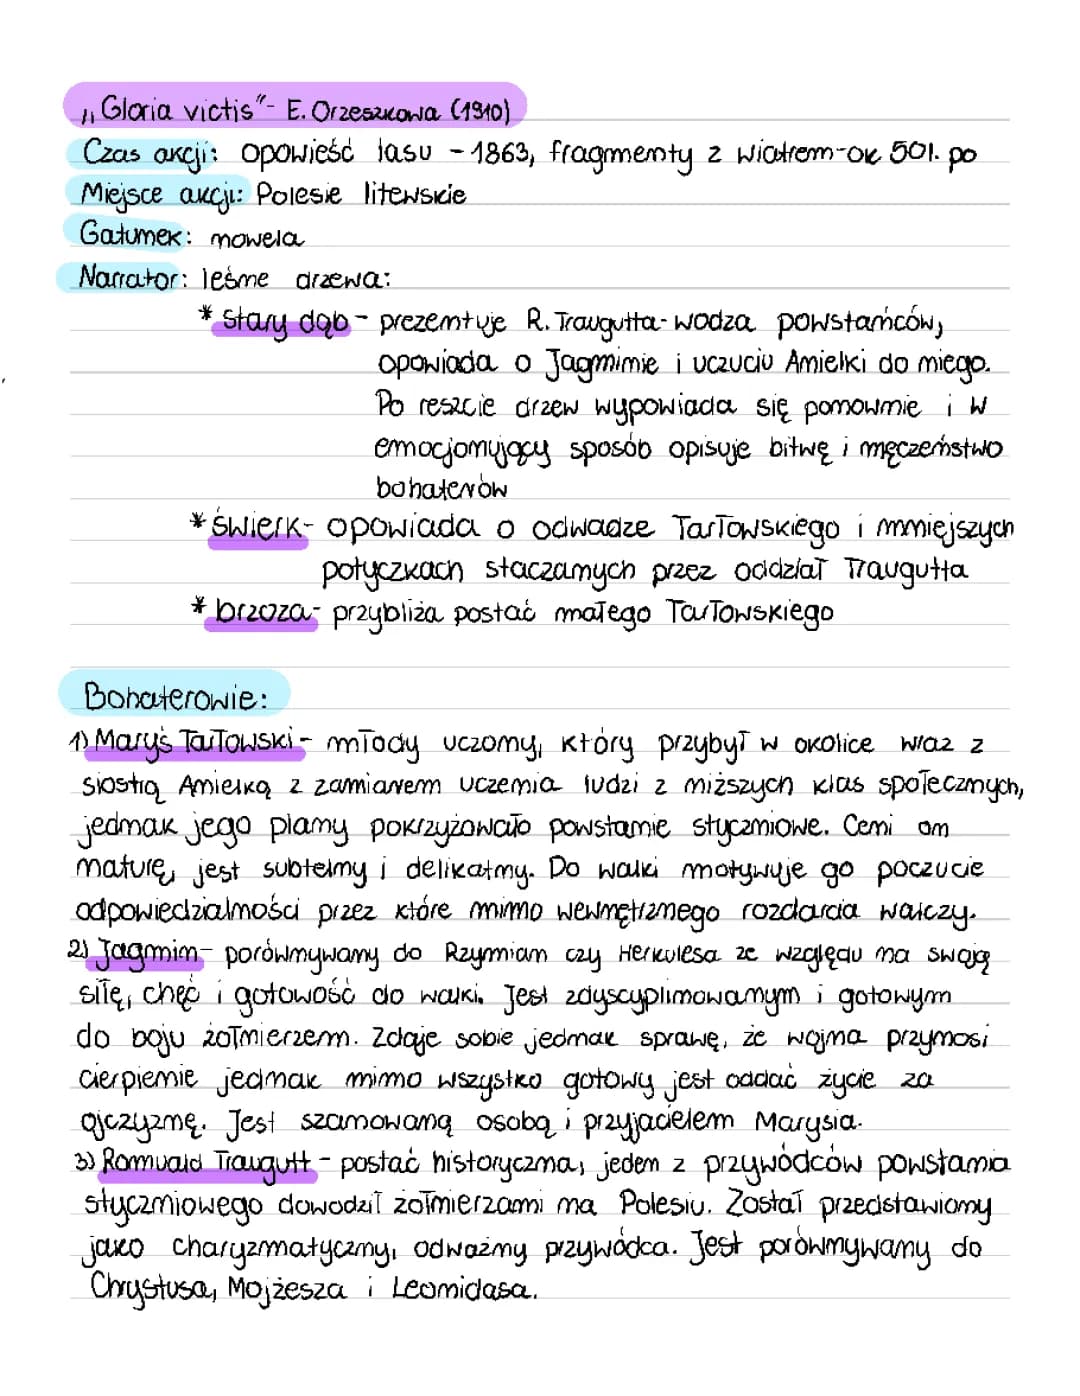 „Gloria victis"- E. Orzeszkowa (1910)
Czas akcji: opowieść lasu - 1863, fragmenty z wiatrem-ok 50l. po
Miejsce akcji: Polesie litewskie
Gatunek: nowela
Narrator: leśne drzewa:
* stary dąb - prezentuje R. Traugutta- wodza powstańców,
opowiada o Jagminie i uczuciu Anielki do niego.
Po reszcie drzew wypowiada się ponownie i w
emocjonujący sposób opisuje bitwę i męczeństwo
bohaterów
* świerk- opowiada o odwadze Tarłowskiego i mniejszych
potyczkach staczanych przez oddział Traugutta
* brzoza- przybliża postać małego Tarłowskiego
Bohaterowie:
1) Maryś Tarłowski - młody uczony, który przybył w okolice wraz z
siostrą Anielką z zamiarem uczenia ludzi z niższych klas społecznych,
jednak jego plany pokrzyżowało powstanie styczniowe. Ceni on
naturę, jest subtelny i delikatny. Do walki motywuje go poczucie
odpowiedzialności przez które mimo wewnętrznego rozdarcia walczy.
2) Jagmin- porównywany do Rzymian czy Herkulesa ze względu na swoją
siłę, chęć i gotowość do walki. Jest zdyscyplinowanym i gotowym
do boju żołnierzem. Zdaje sobie jednak sprawę, że wojna przynosi
cierpienie jednak mimo wszystko gotowy jest oddać życie za
ojczyznę. Jest szanowaną osobą i przyjacielem Marysia.
3) Romuald Traugutt - postać historyczna, jeden z przywódców powstania
styczniowego dowodził żołnierzami na Polesiu. Został przedstawiony
jako charyzmatyczny, odważny przywódca. Jest porównywany do
Chrystusa, Mojżesza i Leonidasa.